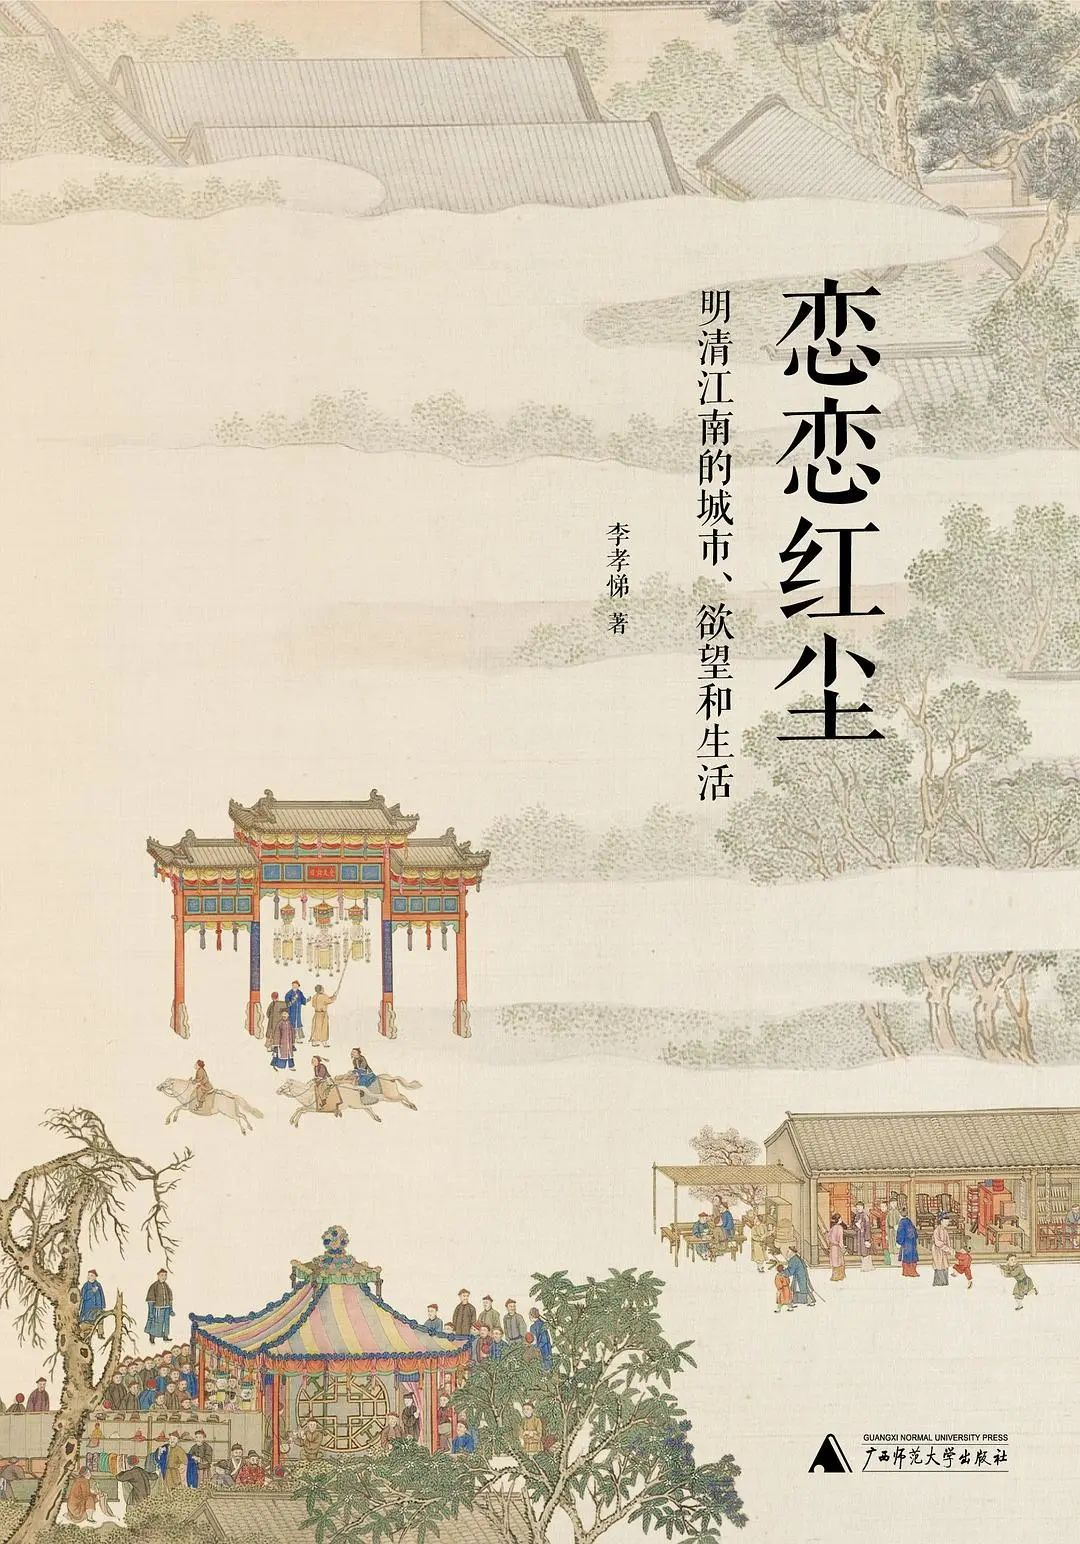 恋恋红尘
明清江南的城市、欲望和生活
李孝悌 著
GUANGXI NORMAL UNIVERSITY PRESS
广西师范大学出版社